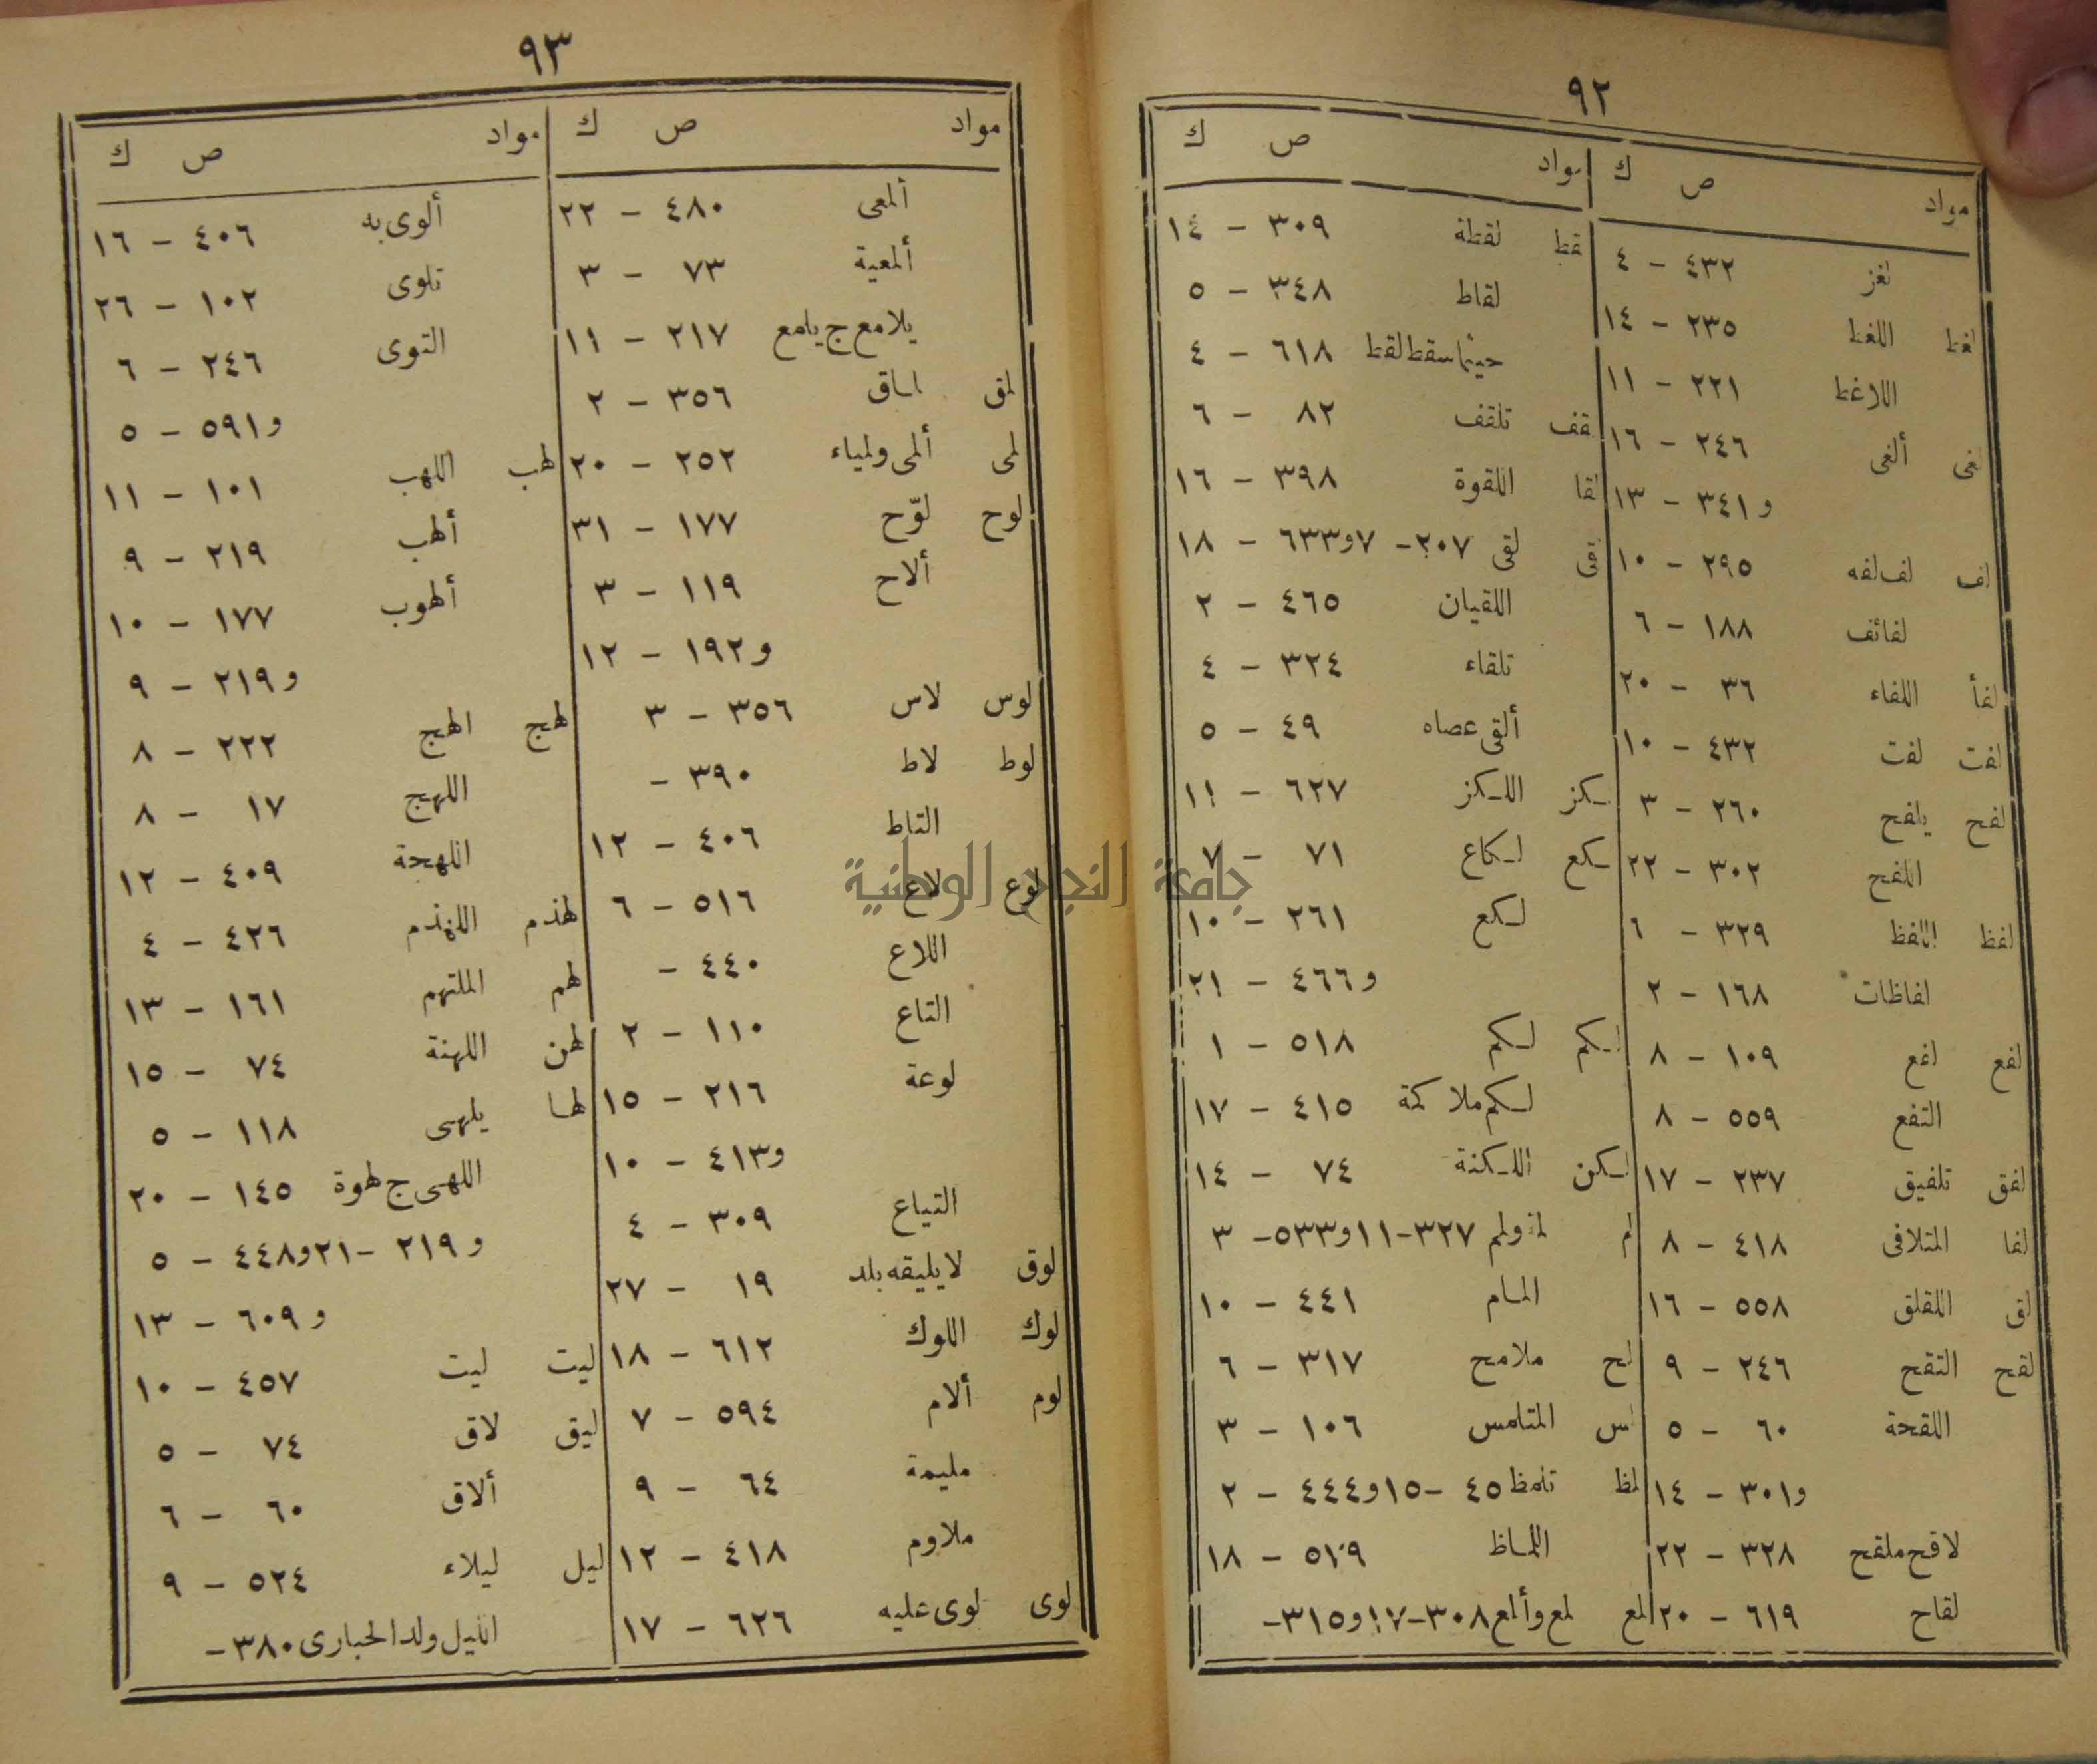 ٩٢
مواد ص ك
لغز ٤٣٢ - ٤
لغط اللغط ٢٣٥ - ١٤
اللاغط ٢٢١ - ١١
لغى ألغى ٢٤٦ - ١٦
و ٣٤١ - ١٣
لف لف لفه ٢٩٥ - ١٠
لفائف ١٨٨ - ٦
لفأ اللفاء ٣٦ - ٢٠
لفت لفت ٤٣٢ - ١٠
لفح يلفح ٢٦٠ - ٣
اللفح ٣٠٢ - ٢٢
لفظ اللفظ ٣٢٩ - ٦
لفاظات ١٦٨ - ٢
لفع لفع ١٠٩ - ٨
التفع ٥٥٩ - ٨
لفق تلفيق ٢٣٧ - ١٧
لفا المتلافى ٤١٨ - ٨
لق اللقلق ٥٥٨ - ١٦
لقح التقح ٢٤٦ - ٩
اللقحة ٦٠ - ٥
و ٣٠١ - ١٤
لاقح ملقح ٣٢٨ - ٢٢
لقاح ٦١٩ - ٢٠
مواد ص ك
لقط لقطة ٣٠٩ - ١٤
لقاط ٣٤٨ - ٥
حيثما سقط لقط ٦١٨ - ٤
لقف تلقف ٨٢ - ٦
لقا اللقوة ٣٩٨ - ١٦
لقى لقى ٢٠٧ - ٧ و ٦٣٣ - ١٨
اللقيان ٤٦٥ - ٢
تلقاء ٣٢٤ - ٤
ألقى عصاه ٤٩ - ٥
لكز اللكز ٦٢٧ - ١١
لكع لكاع ٧١ - ٧
لكع ٢٦١ - ١٠
و ٤٦٦ - ٢١
لكم لكم ٥١٨ - ١
لكم ملاكمة ٤١٥ - ١٧
لكن اللكنة ٧٤ - ١٤
لم لمة ولمم ٣٢٧ - ١١ و ٥٣٣ - ٣
المام ٤٤١ - ١٠
لمح ملامح ٣١٧ - ٦
لمس المتلمس ١٠٦ - ٣
لمظ تلمظ ٤٥ - ١٥ و ٤٤٤ - ٢
اللماظ - ١٨
لمع لمع وألمع ٣٠٨ - ١٧ و ٣١٥ -
٩٣
مواد ص ك
ألمعى ٤٨٠ - ٢٢
ألمعية ٧٣ - ٣
يلامع ج يلمع ٢١٧ - ١١
لمق لماق ٣٥٦ - ٢
لمى ألمى ولمياء ٢٥٢ - ٢٠
لوح لوّح ١٧٧ - ٣١
ألاح ١١٩ - ٣
و ١٩٢ - ١٢
لوس لاس ٣٥٦ - ٣
لوط لاط ٣٩٠ -
التاط ٤٠٦ - ١٢
لوع لاع ٥١٦ - ٦
اللاع ٤٤٠ -
التاع ١١٠ - ٢
لوعة ٢١٦ - ١٥
و ٤١٣ - ١٠
التياع ٣٠٩ - ٤
لوق لا يليقه بلد ١٩ - ٢٧
لوك اللوك ٦١٢ - ١٨
لوم ألام ٥٩٤ - ٧
مليمة ٦٤ - ٩
ملاوم ٤١٨ - ١٢
لوى لوى عليه ٦٢٦ - ١٧
مواد ص ك
ألوى به ٤٠٦ - ١٦
تلوى ١٠٢ - ٢٦
التوى ٢٤٦ - ٦
و ٥٩١ - ٥
لهب اللهب ١٠١ - ١١
ألهب ٢١٩ - ٩
ألهوب ١٧٧ - ١٠
و ٢١٩ - ٩
لهج الهج ٢٢٢ - ٨
اللهج ١٧ - ٨
اللهجة ٤٠٩ - ١٢
لهذم اللهذم ٤٢٦ - ٤
لهم الملتهم ١٦١ - ١٣
لهن اللهنة ٧٤ - ١٥
لها يلهى ١١٨ - ٥
اللهى ج لهوة ١٤٥ - ٢٠
و ٢١٩ - ٢١ و ٤٤٨ - ٥
و ٦٠٩ - ١٣
ليت ليت ٤٥٧ - ١٠
ليق لاق ٧٤ - ٥
ألاق ٦٠ - ٦
ليل ليلاء ٥٢٤ - ٩
الليل ولد الحبارى ٣٨٠ -
جامعة النجاح الوطنية